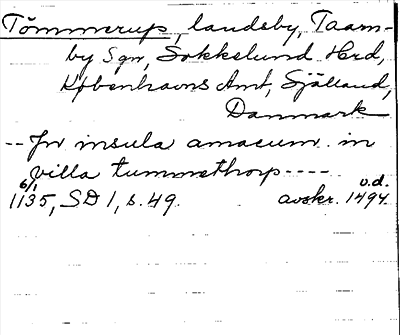 Tömmerup, landsby, Taarn-
by Sgn, Sokkelund Hrd,
Københavns Amt, Själland,
Danmark
-- Jn insula amacum in
villa tummethorp ----
6/1 u.d.
1135, SD 1, s. 49. avskr. 1494